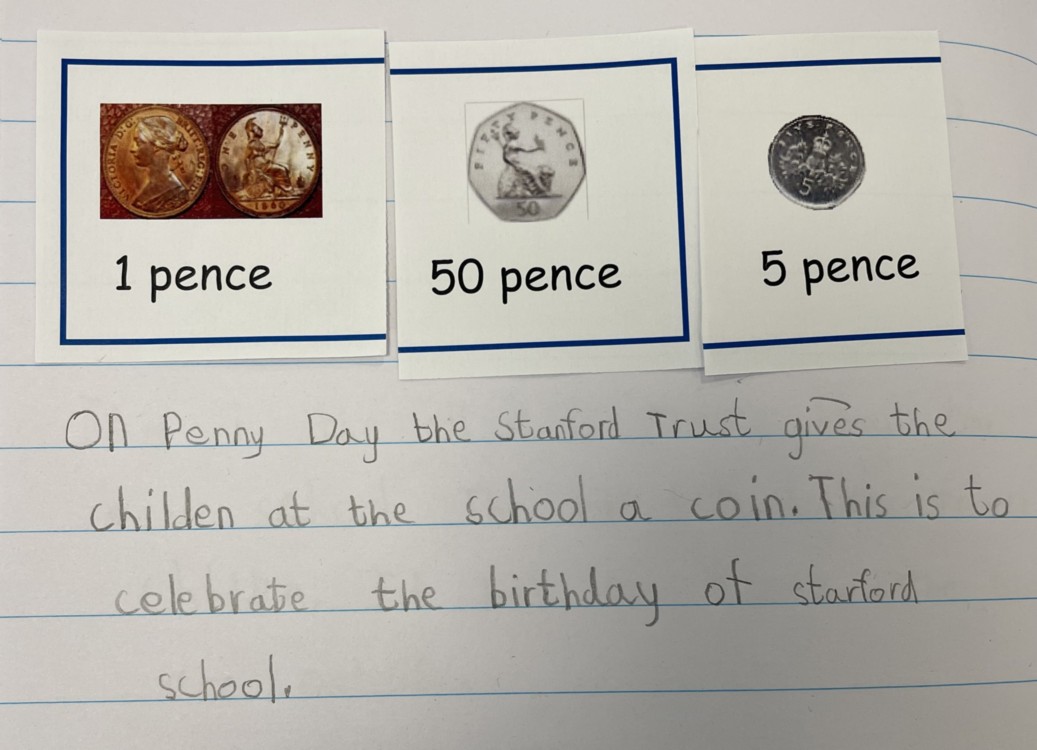 VICTORIA D:G: BRITT:REG:F:D:
ONE PENNY
FIFTY PENCE
50
FIVE PENCE
5
1 pence
50 pence
5 pence
On Penny Day the Stanford Trust gives the
childen at the school a coin. This is to
celebrate the birthday of starford
school.